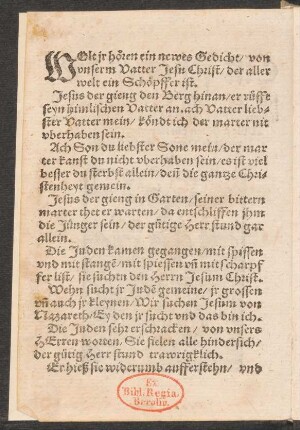 WOlt jr hören ein newes Gedicht/ von
vnserm Vatter Jesu Christ/ der aller
welt ein Schöpffer ist.
Jesus der gieng den Berg hinan/ er rüffe
seyn himlischen Vatter an. ach Vatter lieb-
ster Vatter mein/ köndt ich der marter nit
vberhaben sein.
Ach Son du liebster Sone mein/ der mar
ter kanst du nicht vberhaben sein/ es ist viel
besser du sterbst allein/ deñ die gantze Chri-
stenheyt gemein.
Jesus der gieng in Garten/ seiner bittern
marter thet er warten/ da entschlieffen jhm
die Jünger sein/ der gütige Herr stund gar
allein.
Die Juden kamen gegangen/ mit spissen
vnd mit stangẽ/ mit spiessen vñ mit scharpf
fer list/ sie suchtn den Herrn Jesum Christ.
Wehn sucht jr Jude gemeine/ jr grossen
vñ auch jr kleynen/ Wir suchen Jesum von
Nazareth/ Ey den jr sucht vnd das bin ich.
Die Juden sehr erschracken/ von vnsers
HErren worten/ Sie fielen alle hindersich/
der gütig Herr stund trawrigklich.
Er hieß sie widerumb aufferstehn/ vnd
Ex
Bibl. Regia
Berolin.